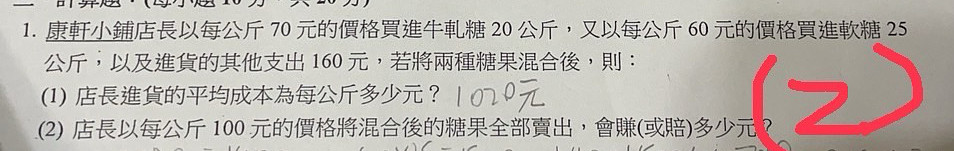 1. 康軒小鋪店長以每公斤 70 元的價格買進牛軋糖 20 公斤，又以每公斤 60 元的價格買進軟糖 25
公斤，以及進貨的其他支出 160 元，若將兩種糖果混合後，則：
(1) 店長進貨的平均成本為每公斤多少元？ 1020元
(2) 店長以每公斤 100 元的價格將混合後的糖果全部賣出，會賺(或賠)多少元？
(2)